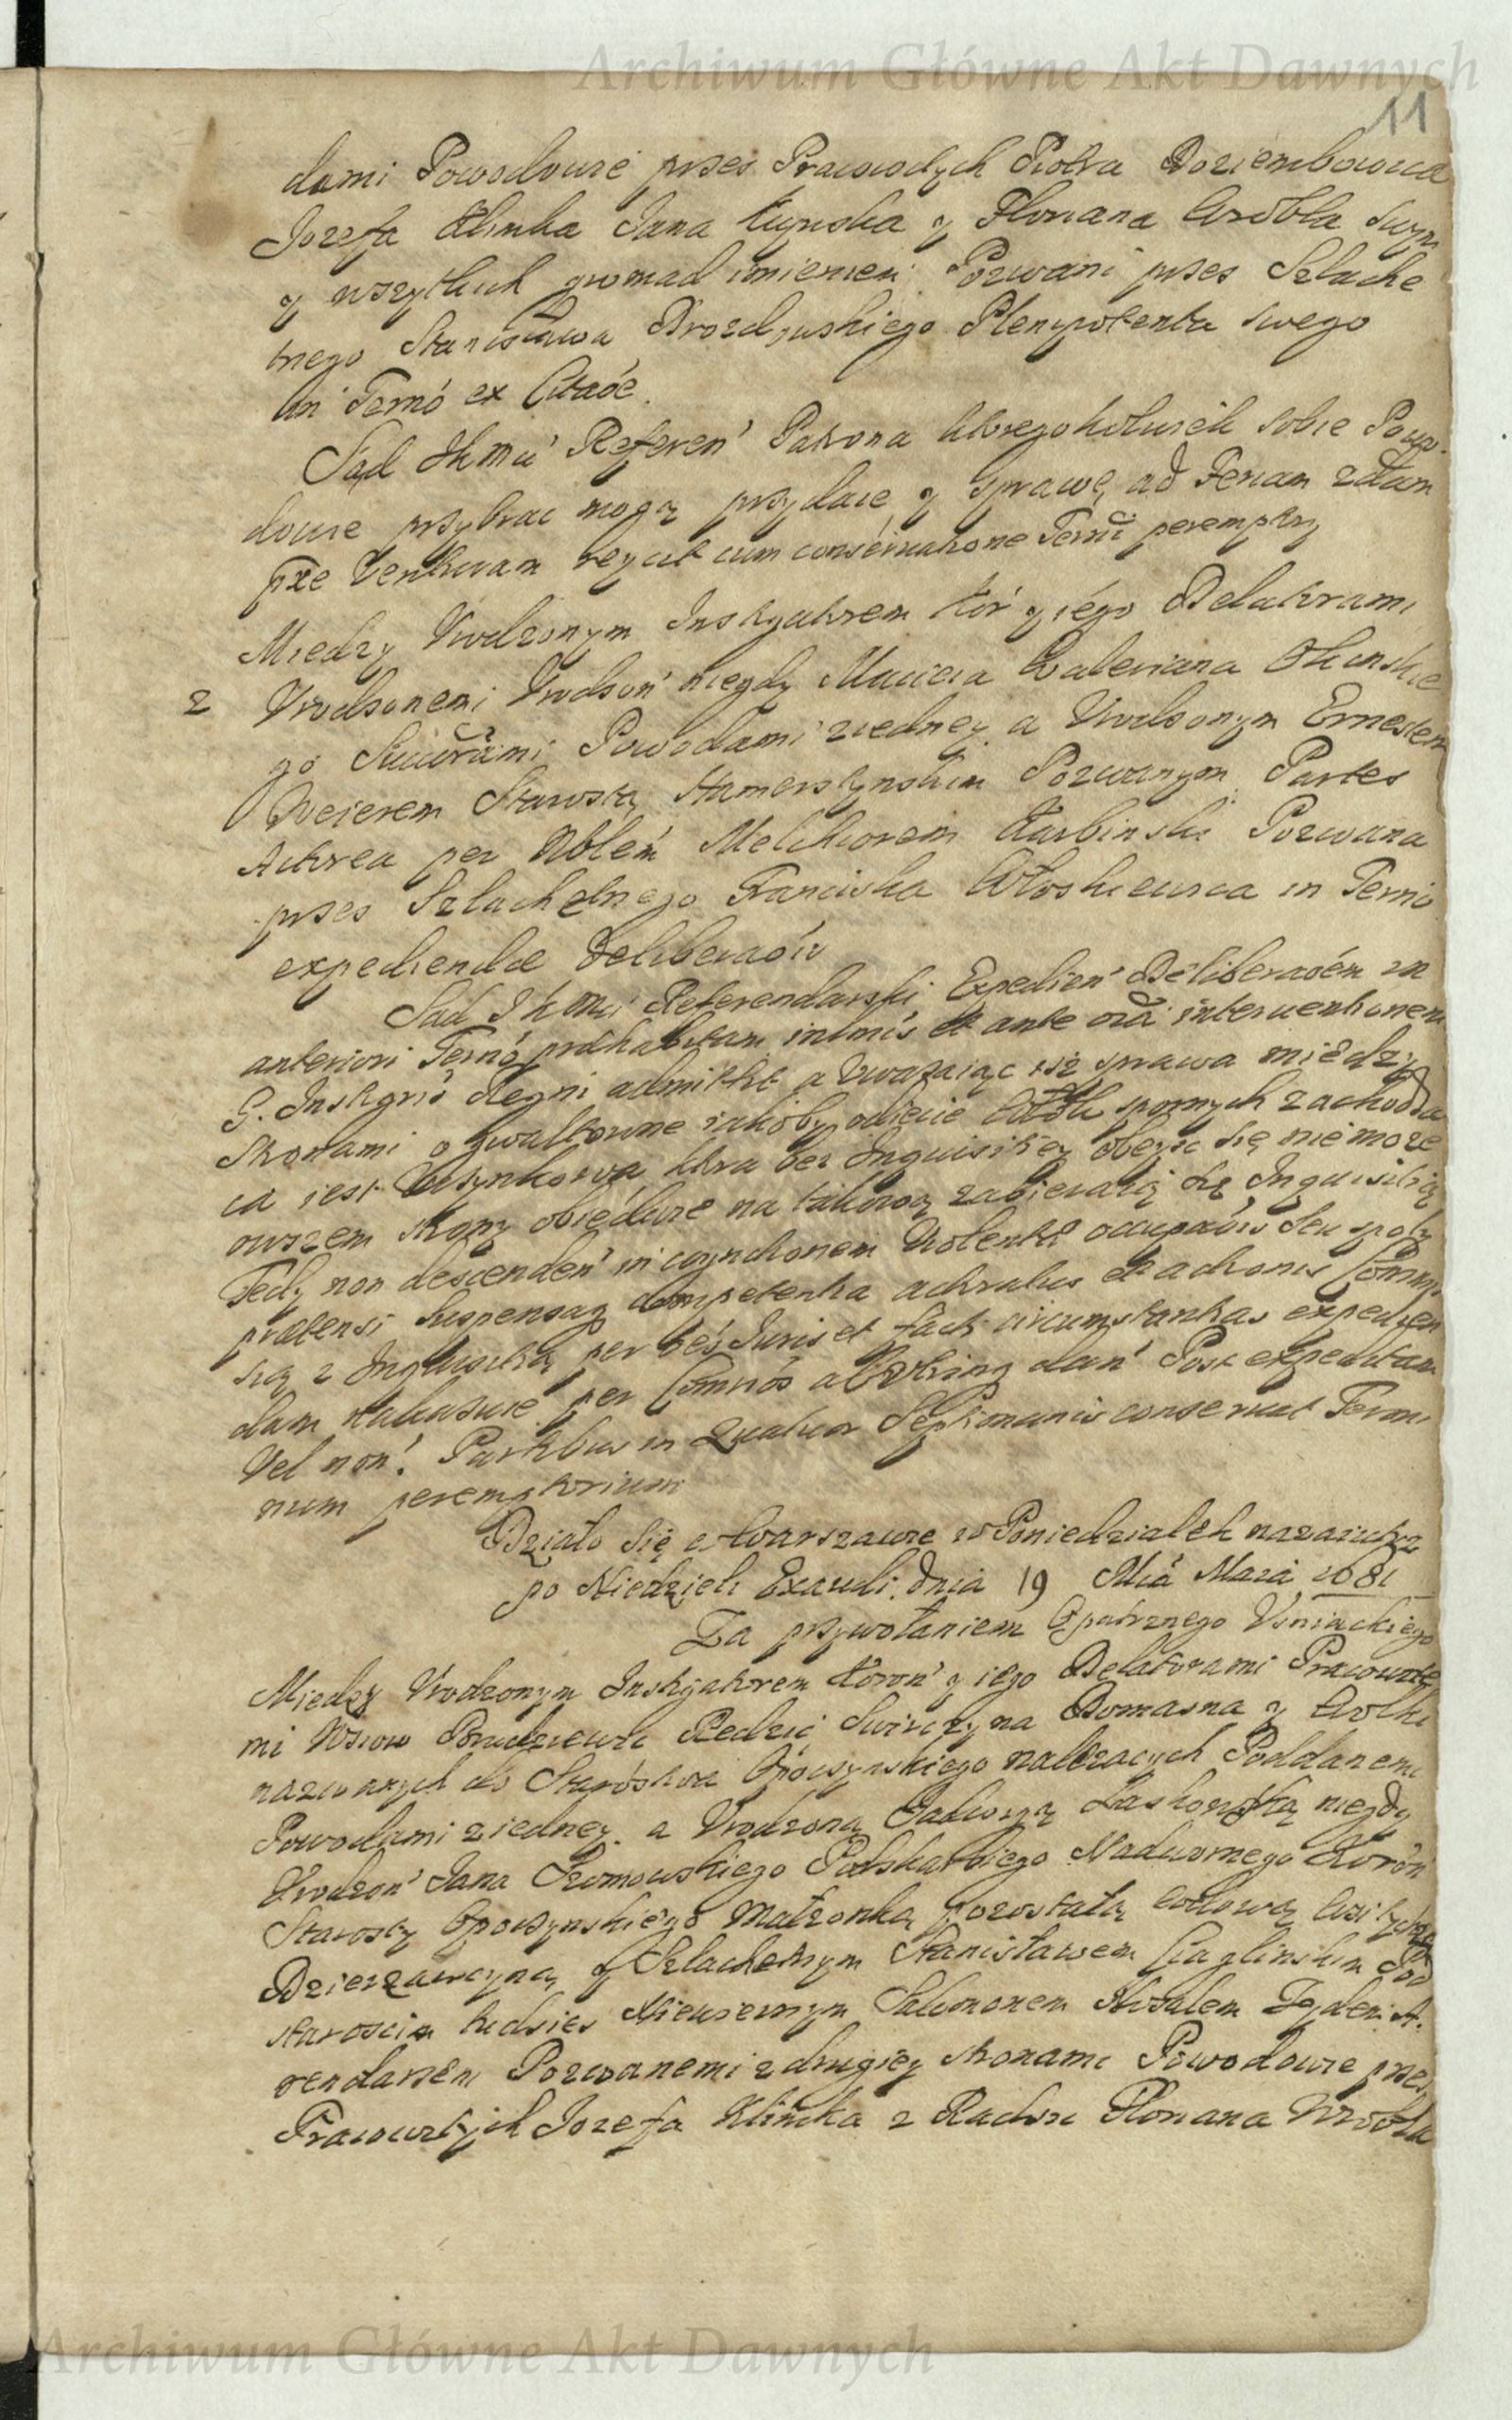 Archiwum Główne Akt Dawnych
11
dami Powodowie przes Pracowitych Piotra Doziembowica
Jozefa Klimka Jana Łupiska y Floriana Wrobla swym
y wszytkich gromad imieniem Pozwani przes Szlache
tnego Stanisława Drozdzynskiego Plenipotenta swego
in Termo ex Citaoe.
Sąd JKMci Referen Patrona ktoregokolwiek sobie Powo
dowie przybrac mogą przydaie y sprawę ad Feriam 2dam
pxe Venturam reycit cum conservatione Termi peremptry
Miedzy Vrodzonym Instygatorem Kor y iego Delatorami
2 Vrodzonemi Vrodzon niegdy Macieia Waleriana Okunskie
go Succorami Powodami z iedney a Vrodzonym Ernestem
Weierem Starostą Hamersztynskim Pozwanym Partes
Actorea per Noblem Melchiorem Karbinski Pozwana
przes Szlachetnego Franciska Włoskiewica in Termio
expediendæ Deliberaois
Sąd JKMci Referendarski Expedien Deliberaoem in
anteriori Termo præhabitam inimis et ante oia interuentionem
G. Instgris Regni admittit a Vwazaiąc isz sprawa między
stronami o gwałtowne iakoby odięcie spornych zachodzą
ca iest Vczynkowa ktora bez Inquisitiey obeysc się nie moze
owszem strony obiedwie na takową zabieraią się Inquisitią
Tedy non descenden in cognitionem Violenti occupaois seu spoly
prætensi suspensaq competentia actoratus et actionis Commis
sią z Inquisitią per oes Juris et facti circumstantias expedien
dam nakazuie per Comrios ab vtrinq dan Post expeditam
Vel non. Partibus in Quatuor Septimanis conseruat Termi
num peremptorium
Działo się w Warszawie w Poniedziałek nazaiutrz
po Niedzieli Exaudi dnia 19 Mca Maia 1681
Za przywołaniem Opatrznego Vsniackiego
Miedzy Vrodzonym Instygatorem Koron y iego Delatorami Pracowite
mi Wsiow Brudzewic Kedzic Swirczyna Domasna y Wolki
nazwanych do Starostwa Opoczynskiego nalezacych Poddanemi
Powodami z iedney a Vrodzoną Jadwigą Laskowską niegdy
Vrodzon Jana Szomowskiego Podskarbiego Nadwornego Koron
Starosty Opoczynskiego Małzonką pozostałą wdową
Dzierzawczyną y Szlachetnym Stanisławem Czaplinskim Pod
staroscim tudzies Niewiernym Salomonem Zydem A.
rendarzem Pozwanemi z drugiey stronami Powodowie przes
Pracowitych Jozefa Klimka z Radzic Floriana Wrobla
Archiwum Główne Akt Dawnych